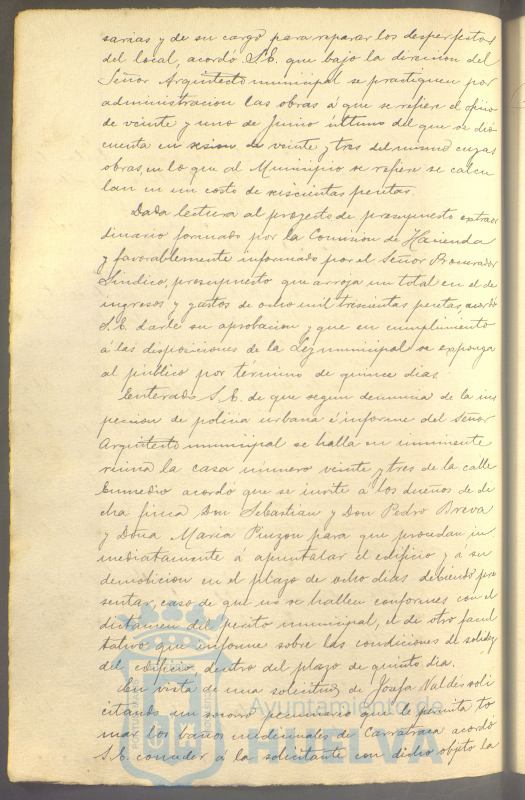 sarias y de su cargo para reparar los desperfectos
del local, acordó S.E. que bajo la direccion del
Señor Arquitecto municipal se practiquen por
administracion las obras á que se refiere el oficio
de veinte y uno de Junio último del que se dió
cuenta en sesion de veinte y tres del mismo cuyas
obras, en lo que al Municipio se refiere se calcu
lan en un costo de seiscientas pesetas.
Dada lectura al proyecto de presupuesto extraor
dinario formado por la Comision de Hacienda
y favorablemente informado por el Señor Procurador
Síndico, presupuesto que arroja un total en el de
ingresos y gastos de ocho mil trescientas pesetas, acordó
S.E. darle su aprobacion y que en cumplimiento
á las disposiciones de la Ley municipal se exponga
al público por término de quince dias.
Enterado S.E. de que segun denuncia de la ins
peccion de policia urbana é informe del Señor
Arquitecto municipal se halla en inminente
ruina la casa número veinte y tres de la calle
Enmedio acordó que se invite á los dueños de di
cha finca Don Sebastian y Don Pedro Breva
y Doña Maria Pinzon para que procedan in
mediatamente á apuntalar el edificio y á su
demolicion en el plazo de ocho dias debiendo pre
sentar, caso de que no se hallen conformes con el
dictamen del perito municipal, el de otro facul
tativo que informe sobre las condiciones de solidez
del edificio dentro del plazo de quinto dia.
En vista de una solicitud de Josefa Valdes soli
citando un socorro pecuniario que le permita to
mar los baños medicinales de Carratraca acordó
S.E. conceder á la solicitante con dicho objeto la
Ayuntamiento de
HUELVA